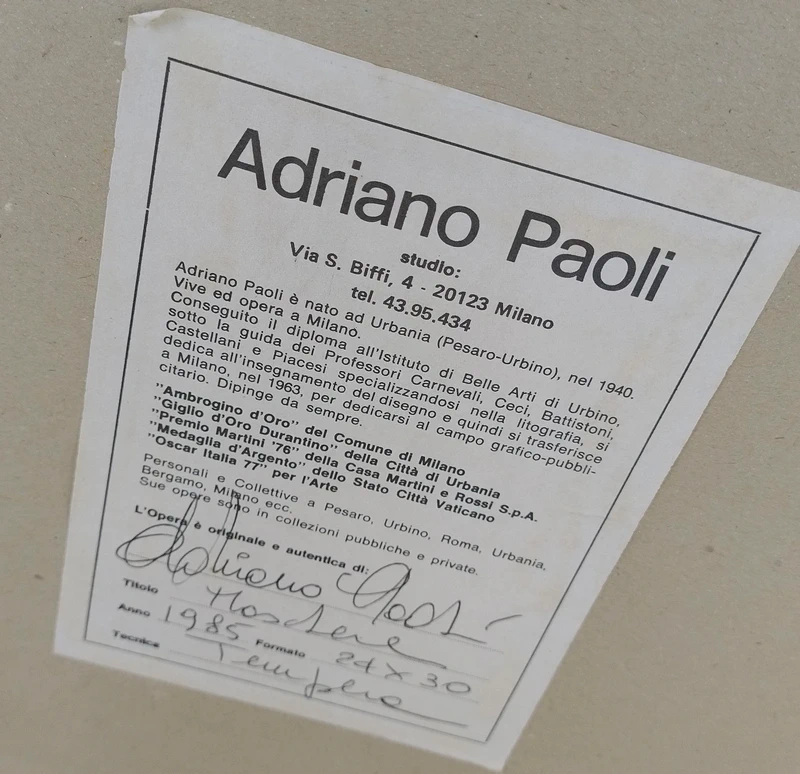 Adriano Paoli
studio:
Via S. Biffi, 4 - 20123 Milano
tel. 43.95.434
Adriano Paoli è nato ad Urbania (Pesaro-Urbino), nel 1940.
Vive ed opera a Milano.
Conseguito il diploma all'Istituto di Belle Arti di Urbino,
sotto la guida dei Professori Carnevali, Ceci, Battistoni,
Castellani e Piacesi specializzandosi nella litografia, si
dedica all'insegnamento del disegno e quindi si trasferisce
a Milano, nel 1963, per dedicarsi al campo grafico-pubbli-
citario. Dipinge da sempre.
"Ambrogino d'Oro" del Comune di Milano
"Giglio d'Oro Durantino" della Città di Urbania
"Premio Martini '76" della Casa Martini e Rossi S.p.A.
"Medaglia d'Argento" dello Stato Città Vaticano
"Oscar Italia 77" per l'Arte
Personali e Collettive a Pesaro, Urbino, Roma, Urbania,
Bergamo, Milano ecc.
Sue opere sono in collezioni pubbliche e private.
L'Opera è originale e autentica di:
Adriano Paoli
Titolo Maschere
Anno 1985 Formato 24 x 30
Tecnica Tempera